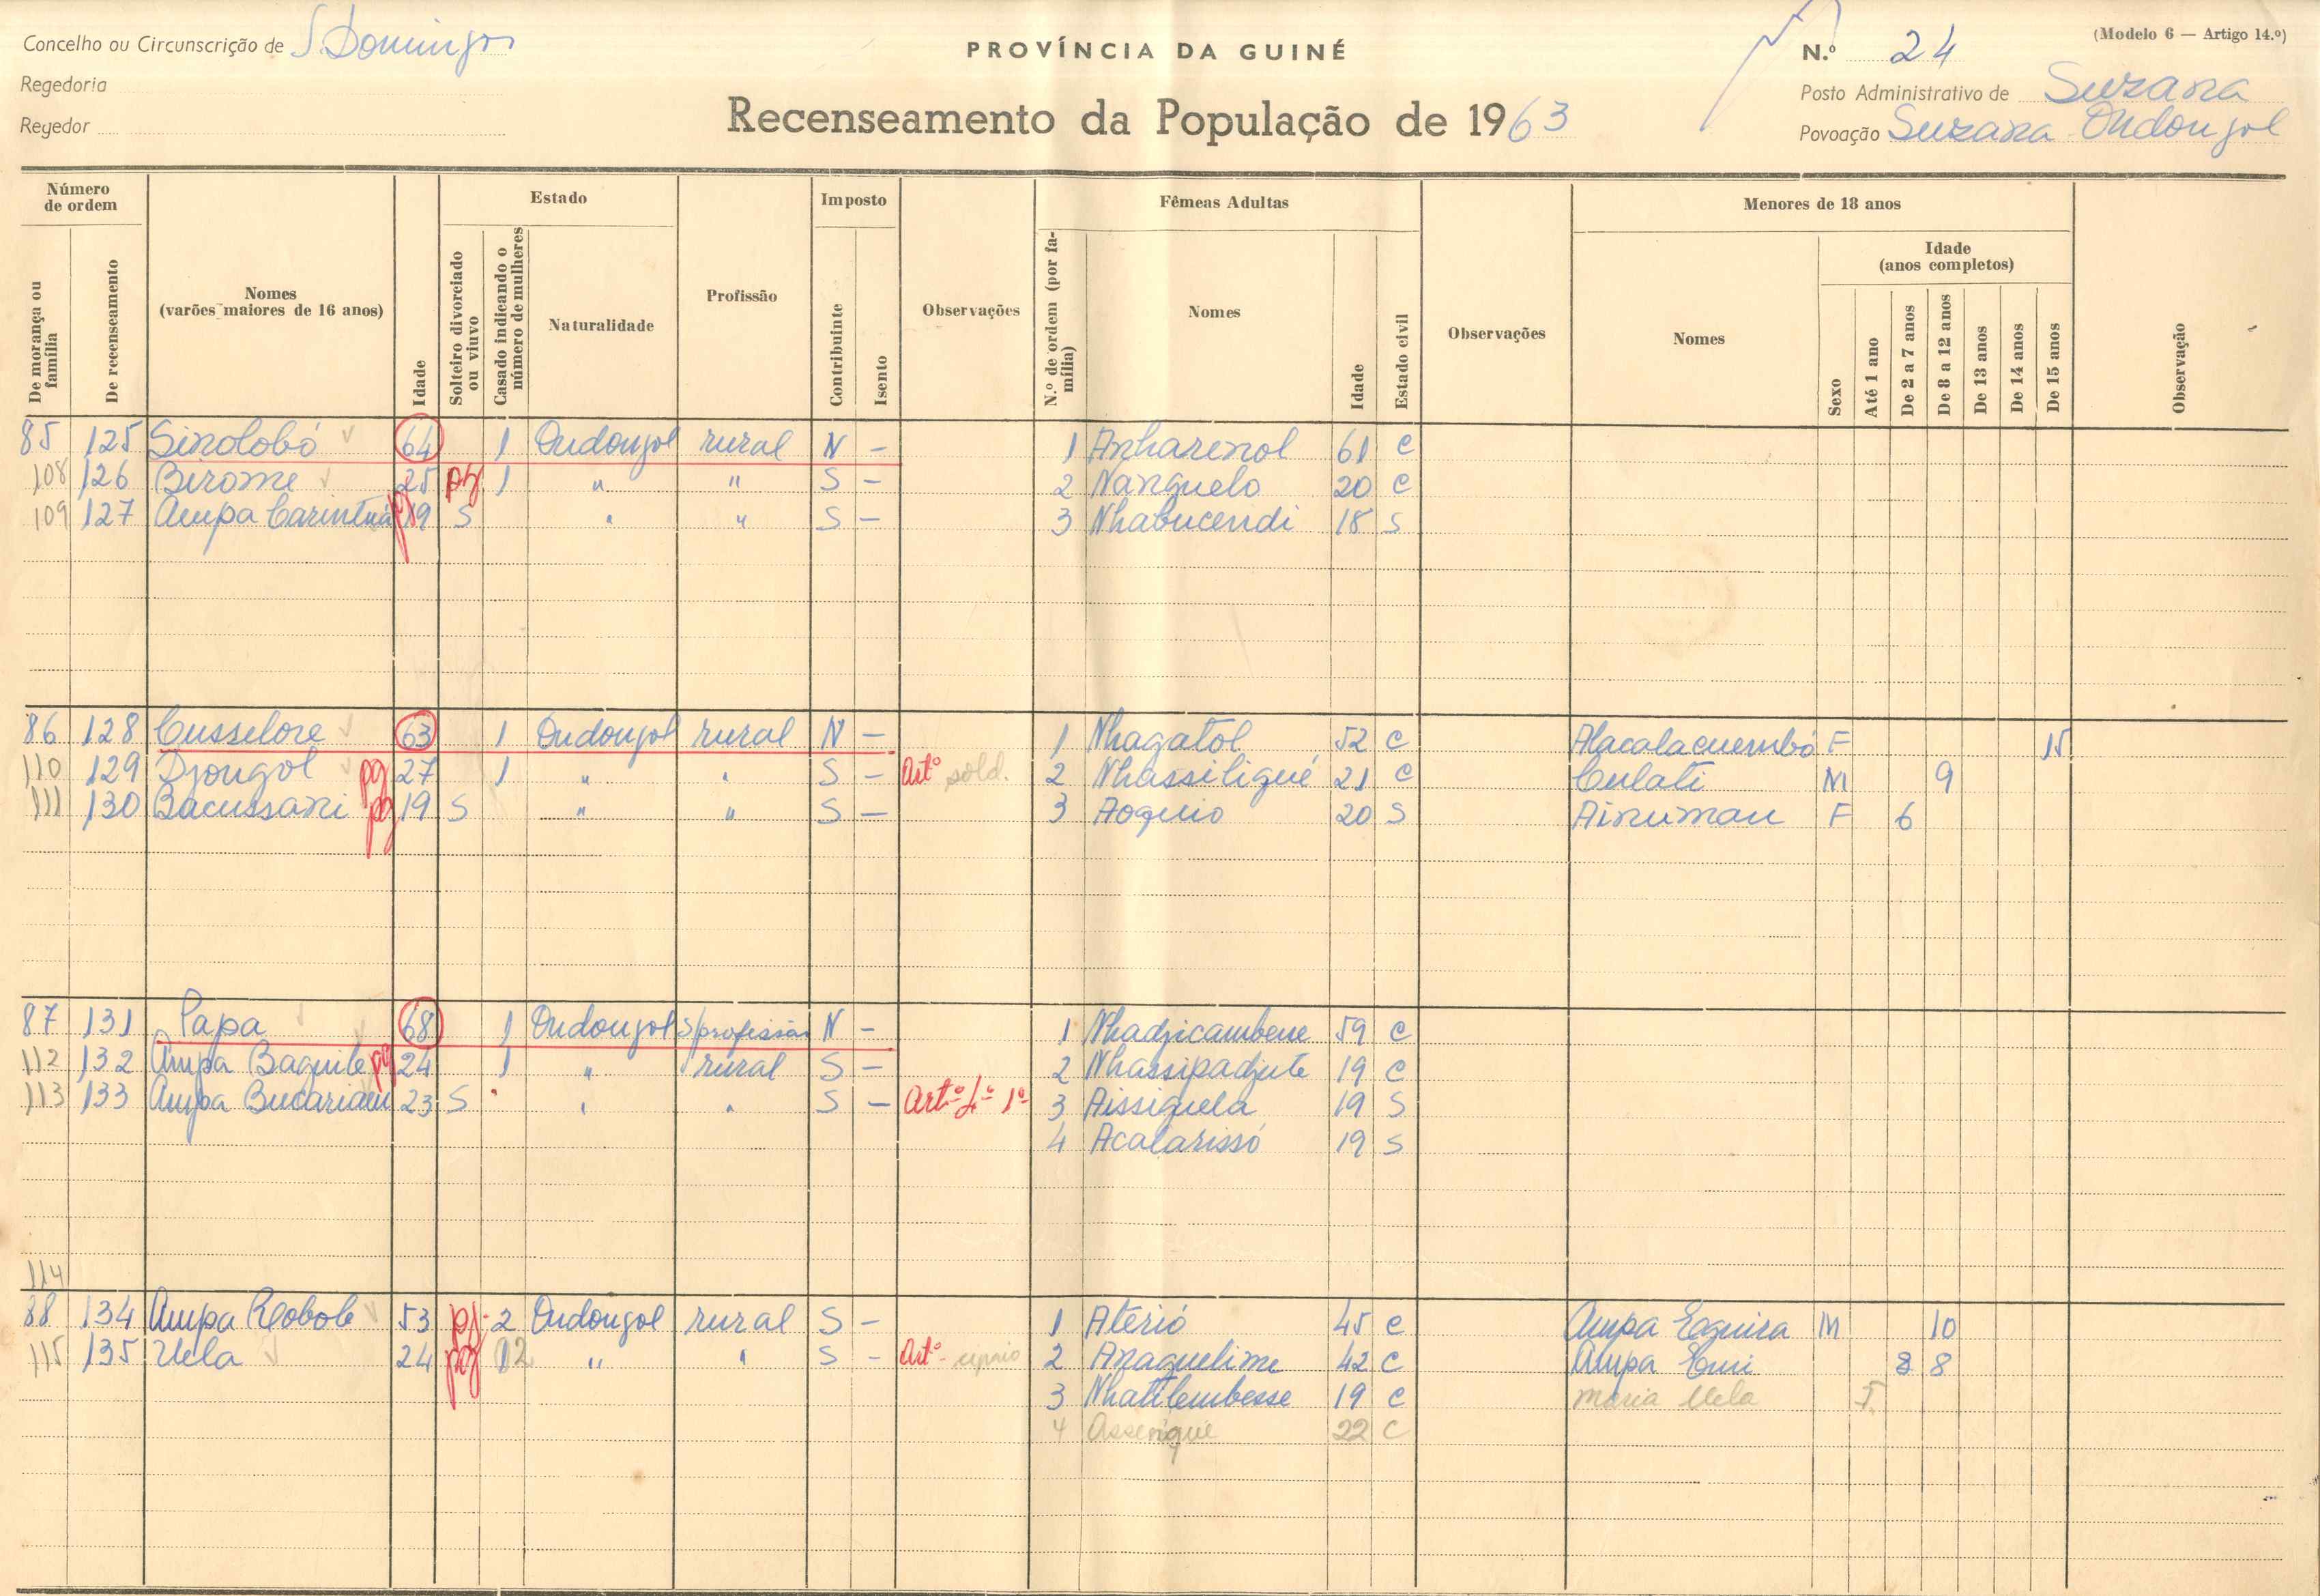 Concelho ou Circunscrição de S. Domingos
PROVÍNCIA DA GUINÉ
N.º 24
(Modelo 6 — Artigo 14.º)
Regedoria
Posto Administrativo de Suzana
Regedor
Recenseamento da População de 1963
Povoação Suzana Ondongol
Número de ordem
De morança ou família
De recenseamento
Nomes (varões maiores de 16 anos)
Idade
Estado
Solteiro divorciado ou viuvo
Casado indicando o número de mulheres
Naturalidade
Profissão
Imposto
Contribuinte
Isento
Observações
Fêmeas Adultas
N.º de ordem (por família)
Nomes
Idade
Estado civil
Observações
Menores de 18 anos
Nomes
Sexo
Idade (anos completos)
Até 1 ano
De 2 a 7 anos
De 8 a 12 anos
De 13 anos
De 14 anos
De 15 anos
Observação
85 125 Sinolobó 64 1 Ondongol rural N - 1 Anharenol 61 C
108 126 Birome 25 pg 1 " " S - 2 Nanguelo 20 C
109 127 Ampa 19 S " " S - 3 Nhabucendi 18 S
86 128 Cusselore 63 1 Ondongol rural N - 1 Nhagatol 52 C Alacalacuembó F 15
110 129 Djongol pg 27 1 " " S - Artº sold. 2 Nhassiliqué 21 C Culati M 9
111 130 Bacussani pg 19 S " " S - 3 Aoquio 20 S Ainuman F 6
87 131 Papa 68 1 Ondongol s/profissão N - 1 Nhadjicambene 59 C
112 132 Ampa Baquile pg 24 1 " rural S - 2 Nhassipadjute 19 C
113 133 Ampa Bucariam 23 S " " S - Artº 1º 3 Aissiguela 19 S
4 Acalarissó 19 S
114
88 134 Ampa 53 pg 2 Ondongol rural S - 1 Aterió 45 C Ampa Eguira M 10
115 135 Uela 24 pg 2 " " S - Artº cipaio 2 Anaquelime 42 C Ampa 8 8
3 Nhatilembesse 19 C Maria Uela
4 22 C